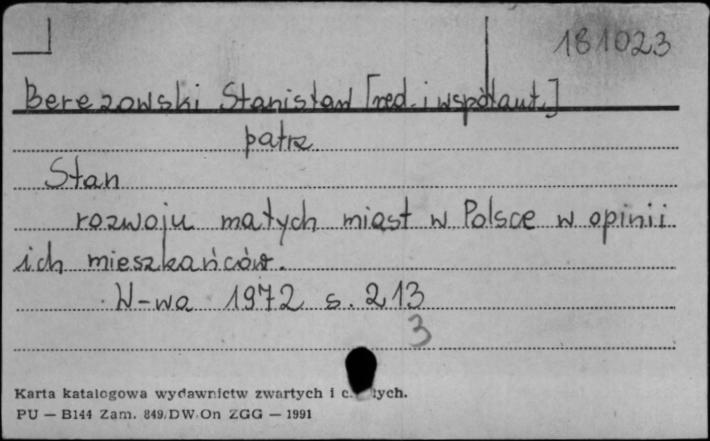 181023
Berezowski Stanisław [red. i współaut.]
patrz
Stan
rozwoju małych miast w Polsce w opinii
ich mieszkańców.
W-wa 1972 s. 213
3
Karta katalogowa wydawnictw zwartych i
PU — B144 Zam. 849/DW On ZGG — 1991